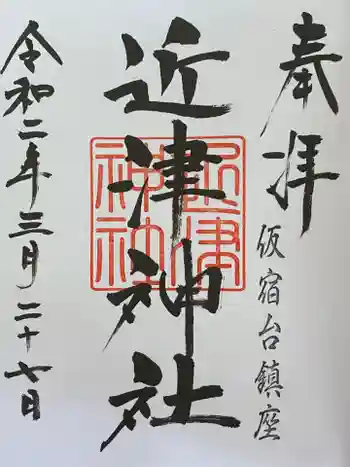 奉拝
仮宿台鎮座
近津神社
近津
神社
令和二年三月二十七日